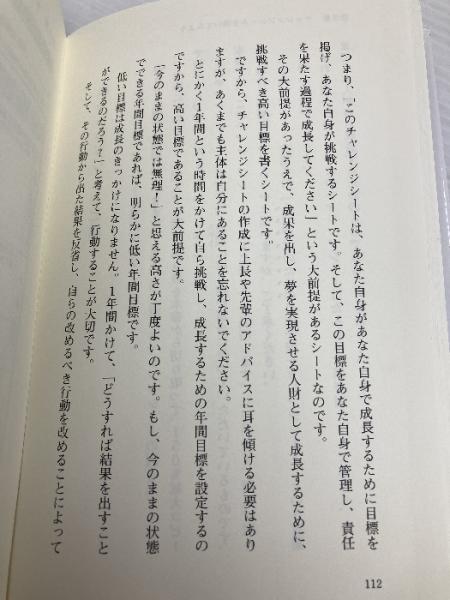 つまり、「このチャレンジシートは、あなた自身があなた自身で成長するために目標を
掲げ、あなた自身が挑戦するシートです。そして、この目標をあなた自身で管理し、責任
を果たす過程で成長してください」という大前提があるシートなのです。
その大前提があったうえで、成果を出し、夢を実現させる人財として成長するために、
挑戦すべき高い目標を書くシートです。
ですから、チャレンジシートの作成に上長や先輩のアドバイスに耳を傾ける必要はあり
ますが、あくまでも主体は自分にあることを忘れないでください。
とにかく1年間という時間をかけて自ら挑戦し、成長するための年間目標を設定するの
ですから、高い目標であることが大前提です。
「今のままの状態では無理!」と思える高さが丁度よいのです。もし、今のままの状態
でできる年間目標であれば、明らかに低い年間目標です。
低い目標は成長のきっかけになりません。1年間かけて、「どうすれば結果を出すこと
ができるのだろう?」と考えて、行動することが大切です。
そして、その行動から出た結果を反省し、自らの改めるべき行動を改めることによって
112